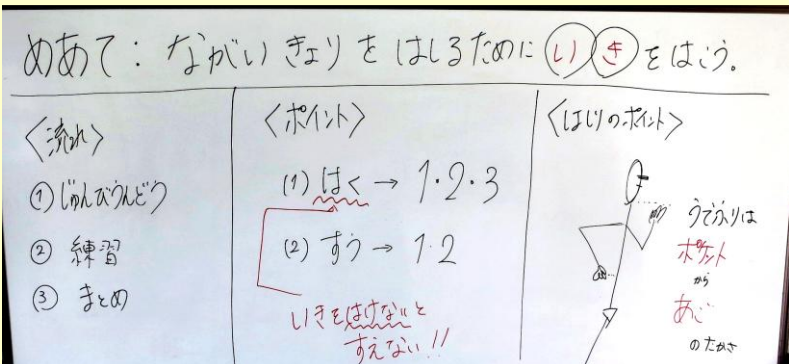 めあて：ながいきょりをはしるためにいきをはこう。
〈流れ〉
①じゅんびうんどう
② 練習
③ まとめ
〈ポイント〉
(1) はく → 1・2・3
(2) すう → 1・2
いきをはけないと
すえない!!
〈はしりのポイント〉
うでふりは
ポケット
から
あご
のたかさ